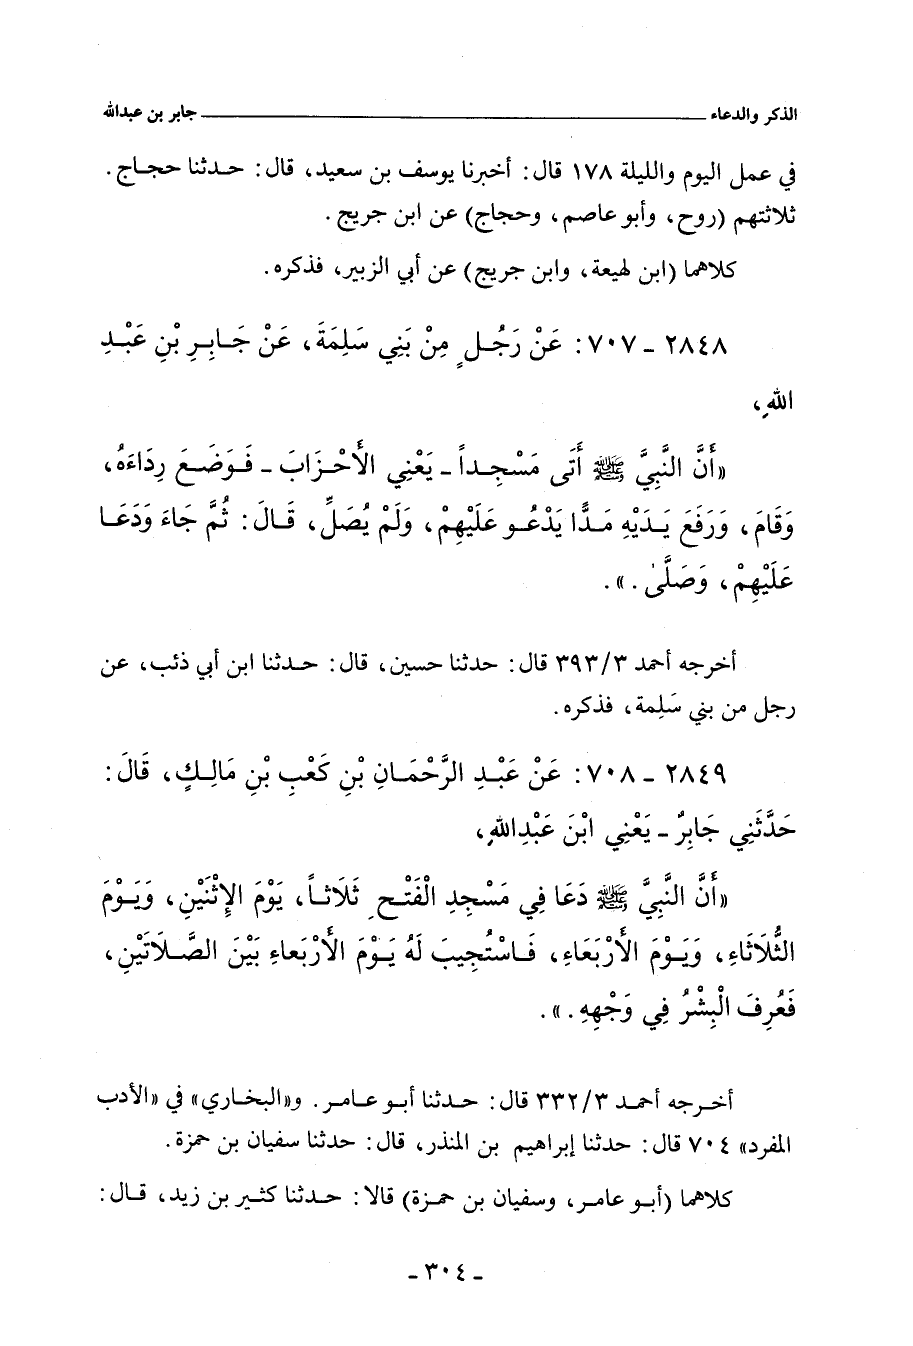 الذكر والدعاء ــــــــــــــــــــ جابر بن عبدالله
في عمل اليوم والليلة ١٧٨ قال: أخبرنا يوسف بن سعيد، قال: حدثنا حجاج.
ثلاثتهم (روح، وأبو عاصم، وحجاج) عن ابن جريج.
كلاهما (ابن لهيعة، وابن جريج) عن أبي الزبير، فذكره.
٢٨٤٨ ـ ٧٠٧: عَنْ رَجُلٍ مِنْ بَنِي سَلِمَةَ، عَنْ جَابِرِ بْنِ عَبْدِ
اللهِ،
«أَنَّ النَّبِيَّ ﷺ أَتَى مَسْجِداً ـ يَعْنِي الأَحْزَابَ ـ فَوَضَعَ رِدَاءَهُ،
وَقَامَ، وَرَفَعَ يَدَيْهِ مَدًّا يَدْعُو عَلَيْهِمْ، وَلَمْ يُصَلِّ، قَالَ: ثُمَّ جَاءَ وَدَعَا
عَلَيْهِمْ، وَصَلَّىٰ.».
أخرجه أحمد ٣/٣٩٣ قال: حدثنا حسين، قال: حدثنا ابن أبي ذئب، عن
رجل من بني سَلِمة، فذكره.
٢٨٤٩ ـ ٧٠٨: عَنْ عَبْدِ الرَّحْمَانِ بْنِ كَعْبِ بْنِ مَالِكٍ، قَالَ:
حَدَّثَنِي جَابِرٌ ـ يَعْنِي ابْنَ عَبْدِاللهِ،
«أَنَّ النَّبِيَّ ﷺ دَعَا فِي مَسْجِدِ الْفَتْحِ ثَلَاثاً، يَوْمَ الإِثْنَيْنِ، وَيَوْمَ
الثُّلَاثَاءِ، وَيَوْمَ الأَرْبَعَاءِ، فَاسْتُجِيبَ لَهُ يَوْمَ الأَرْبَعَاءِ بَيْنَ الصَّلَاتَيْنِ،
فَعُرِفَ الْبِشْرُ فِي وَجْهِهِ.».
أخرجه أحمد ٣/٣٣٢ قال: حدثنا أبو عامر. و«البخاري» في «الأدب
المفرد» ٧٠٤ قال: حدثنا إبراهيم بن المنذر، قال: حدثنا سفيان بن حمزة.
كلاهما (أبو عامر، وسفيان بن حمزة) قالا: حدثنا كثير بن زيد، قال:
ـ ٣٠٤ ـ